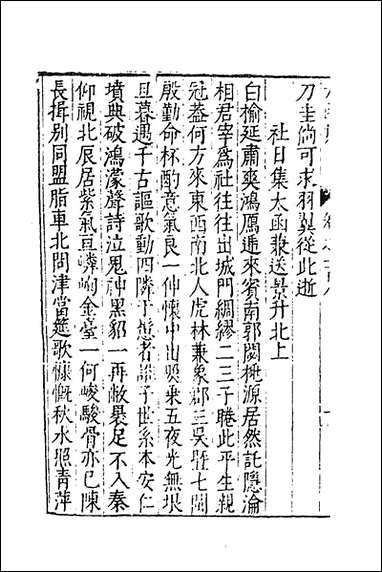 刀圭倘可求羽翼從此逝
社日集太函兼送景升北上
白榆延肅爽鴻鴈遞來賓南郭閟桃源居然託隱淪
相君宰爲社往往出城門綢繆二三子睠此平生親
冠蓋何方來東西南北人虎林兼象郡三吳曁七閩
殷勤命杯酌意氣良一伸懷中出照乗五夜光無垠
旦暮遇千古謳歌動四隣于
者
子世系本安仁
墳典破鴻濛聲詩泣鬼神黑貂一再敝裹足不入秦
仰視北辰居紫氣亘嶙峋金臺一何峻駿骨亦已陳
長揖別同盟脂車北問津當筵歌慷慨秋水照青萍